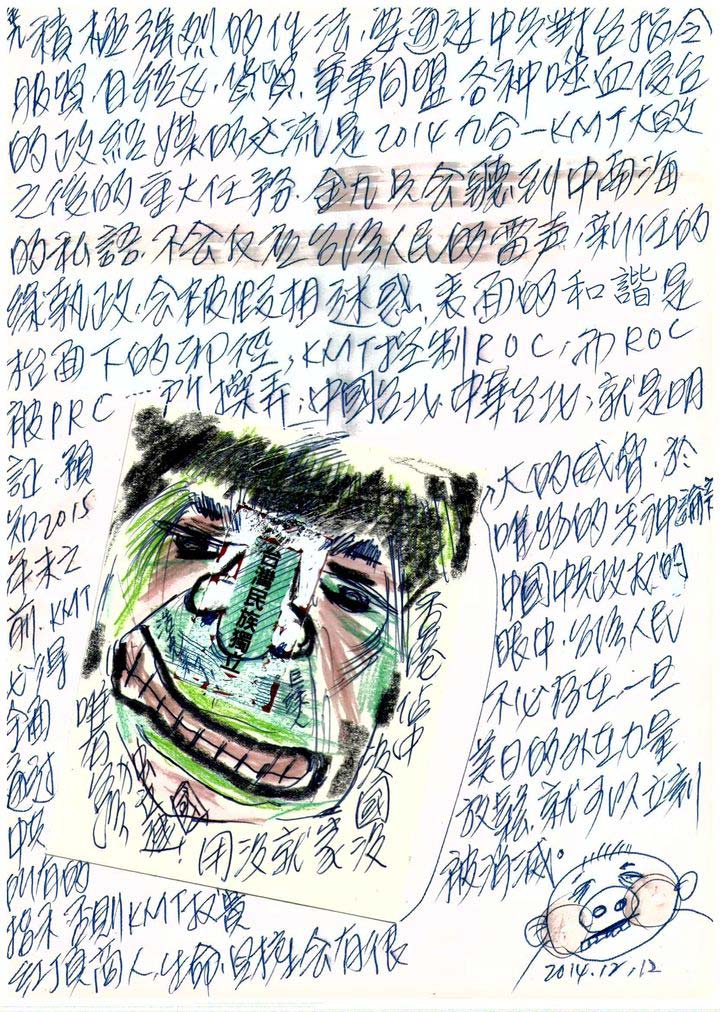 積極強烈的作法,要通過中共對台指令
服貿.自經區,貨貿.軍事同盟.各種噬血侵台
的政經媒的交流是2014九合一KMT大敗
之後的重大任務.金九只会聽到中南海
的私語.不会反應台湾人民的雷声,新任的
綠執政,会被假相迷惑.表面的和諧是
枱面下的邪徑,KMT控制ROC,而ROC
被PRC……所操弄;中國台北.中華台北;就是明
証.預
知2015
年末之
前.KMT
必得
全面
通过
中共
所有的
指示否則KMT权貴
紅頂商人,生命.
大的威脅.於
唯物的
中國中共政权的
眼中.台湾人民
不必存在.一旦
美日的外在力量
放鬆.就可以立刻
被消滅。
台灣民族獨立
香港佔中
沒國
用沒就家沒
2014.12,12